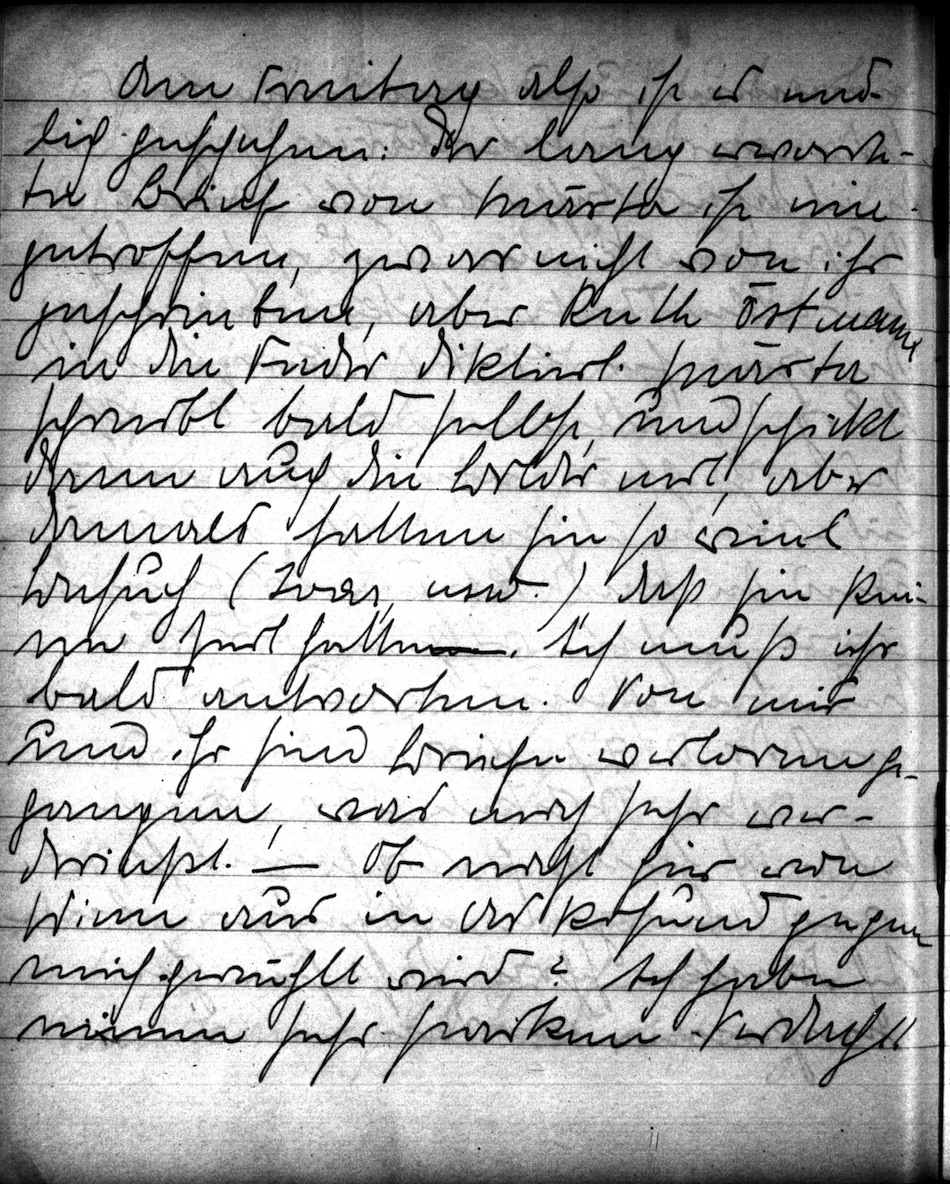 Am Freitag also ist es end-
lich geschehen: Der lang erwarte-
te Brief von Märta ist ein-
getroffen, zwar nicht von ihr
geschrieben, aber Ruth Östmann
in die Feder diktiert. Märta
schreibt bald selbst, und schickt
dann auch die Bilder mit, aber
damals hatten sie so viel
Besuch (Ivar, usw.) daß sie kei-
ne Zeit hatten. Ich muß ihr
bald antworten. Von mir
und ihr sind Briefe verloren ge-
gangen, was mich sehr ver-
drießt. — Ob nicht hier von
Wien aus in
mich gewühlt wird? Ich habe
einen sehr starken Verdacht